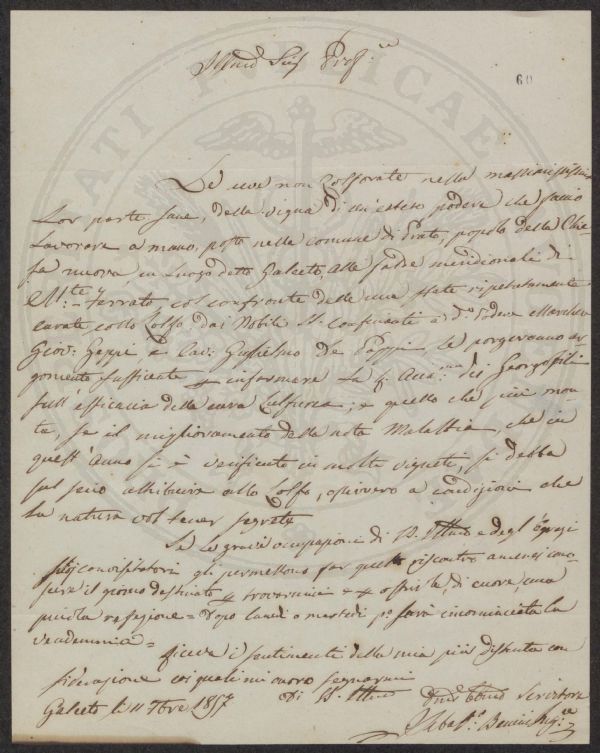 Illmo Sig Prof.re
60
Le uve non Zolforate nella massima
Lor parte sane, della vigna di un esteso podere che faccio
lavorare a mano, posto nella comune di Prato, popolo della Chie-
sa nuova, in luogo detto Galceto, alle falde meridionali di
M:te Ferrato col confronto delle uve state ripetutamente
curate collo Zolfo, dai Nobili SS. confinanti a d.o Podere Marchese
Giov: Geppi e Cav: Guglielmo De Poppi, le porgeranno ar-
gomento sufficiente p informare la Acca.mia dei Georgofili
sull'efficacia della cura sulfurea; e quello che più mon-
ta, se il miglioramento della nota Malattia, che in
quest'anno si è verificato in molti vigneti, si debba
sul serio attribuire allo Zolfo, ovvero a condizioni che
la natura vol tener segrete
Se le gravi occupazioni di V. Illma e degl'egregi
convisitatori gli permettono far questo riscontro amerei cono-
scere il giorno destinato p trovarmici e p offrirle, di cuore, una
piccola refezione = Dopo lunedi o martedi p.o sarà incominciata la
vendemmia =
Riceva i sentimenti della mia più distinta con
siderazione coi quali mi onoro segnarmi
Di V. Illma
Galceto li 11 7bre 1857
Servitore
Bonini
ATI PUBLICAE